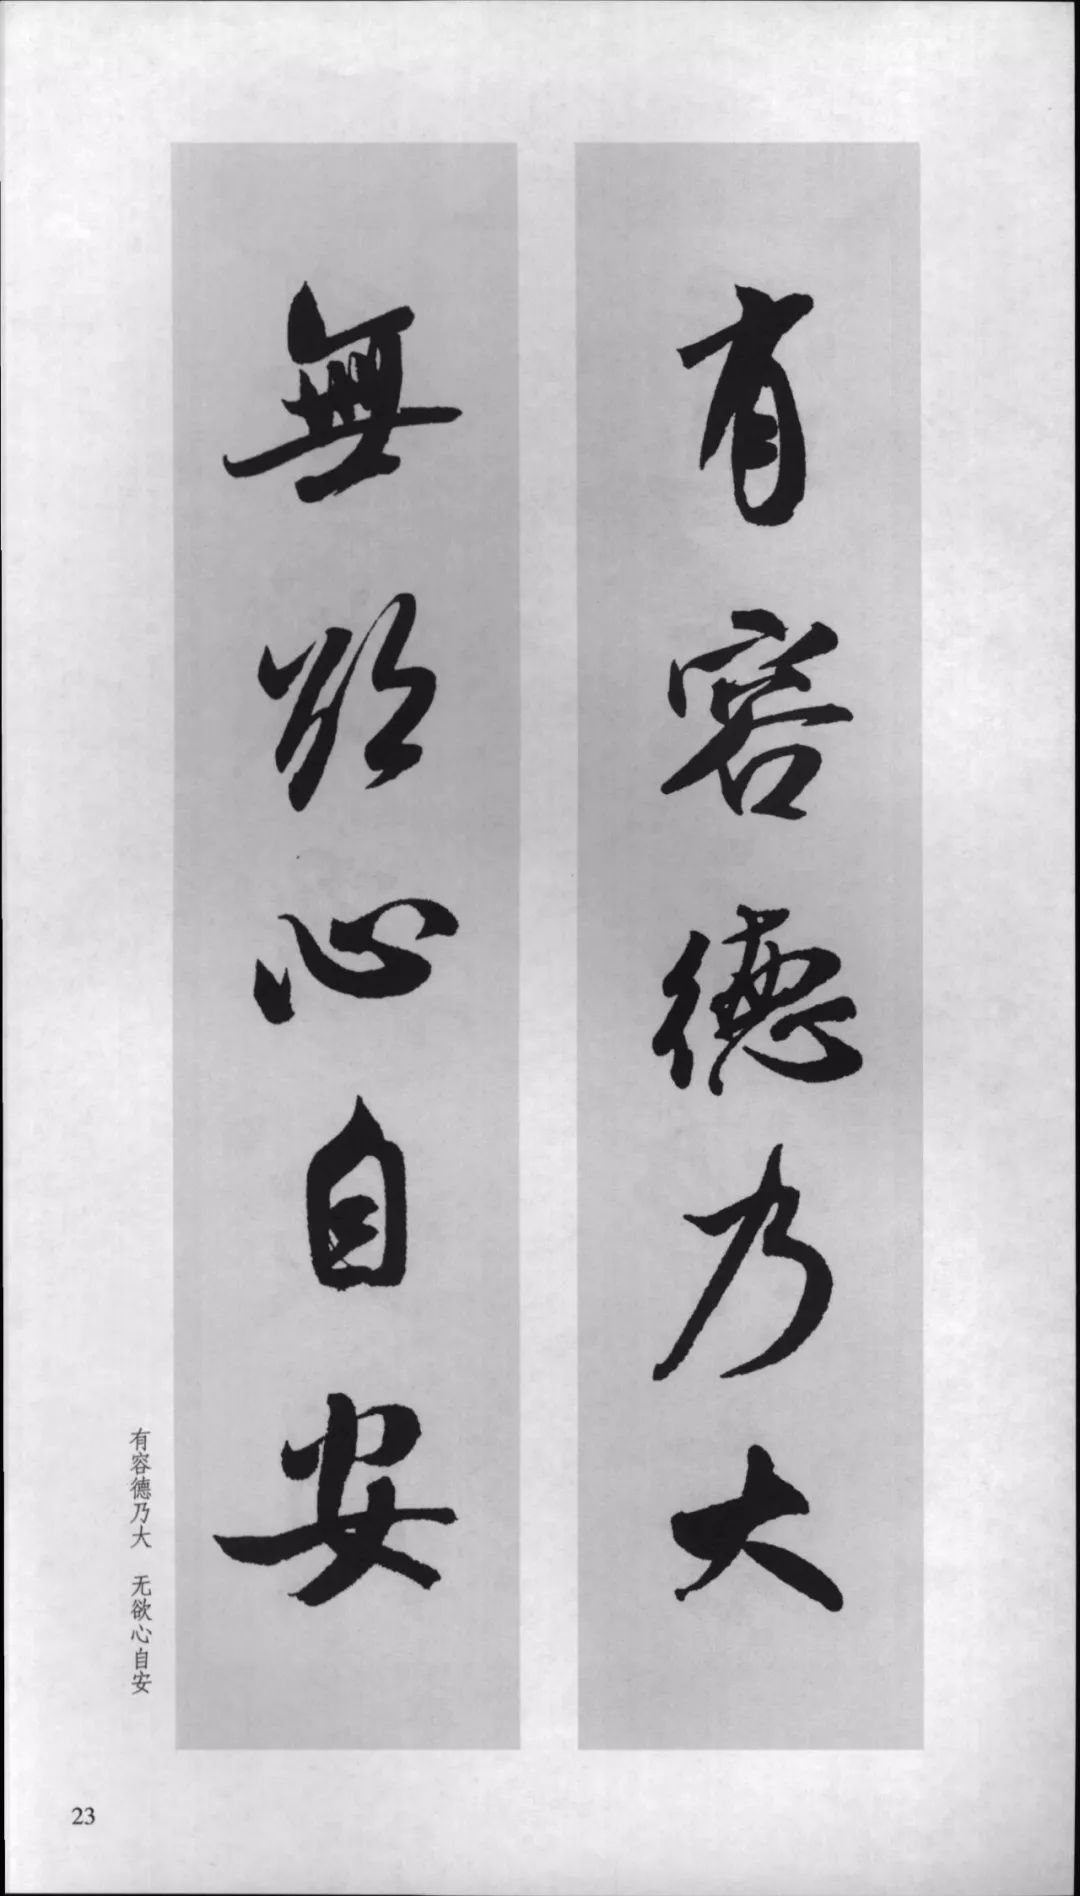 有容德乃大
無欲心自安
有容德乃大 无欲心自安
23